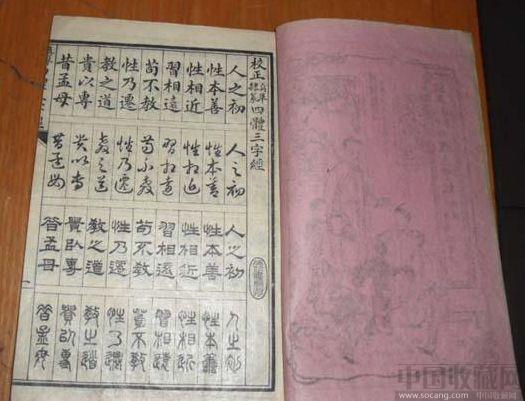 校正真草隸篆四體三字經
人之初 人之初 人之初 人之初
性本善 性本善 性本善 性本善
性相近 性相近 性相近 性相近
習相遠 習相遠 習相遠 習相遠
苟不教 苟不教 苟不教 苟不教
性乃遷 性乃遷 性乃遷 性乃遷
教之道 教之道 教之道 教之道
貴以專 貴以專 貴以專 貴以專
昔孟母 昔孟母 昔孟母 昔孟母
中国收藏网
www.socang.com 中国收藏网